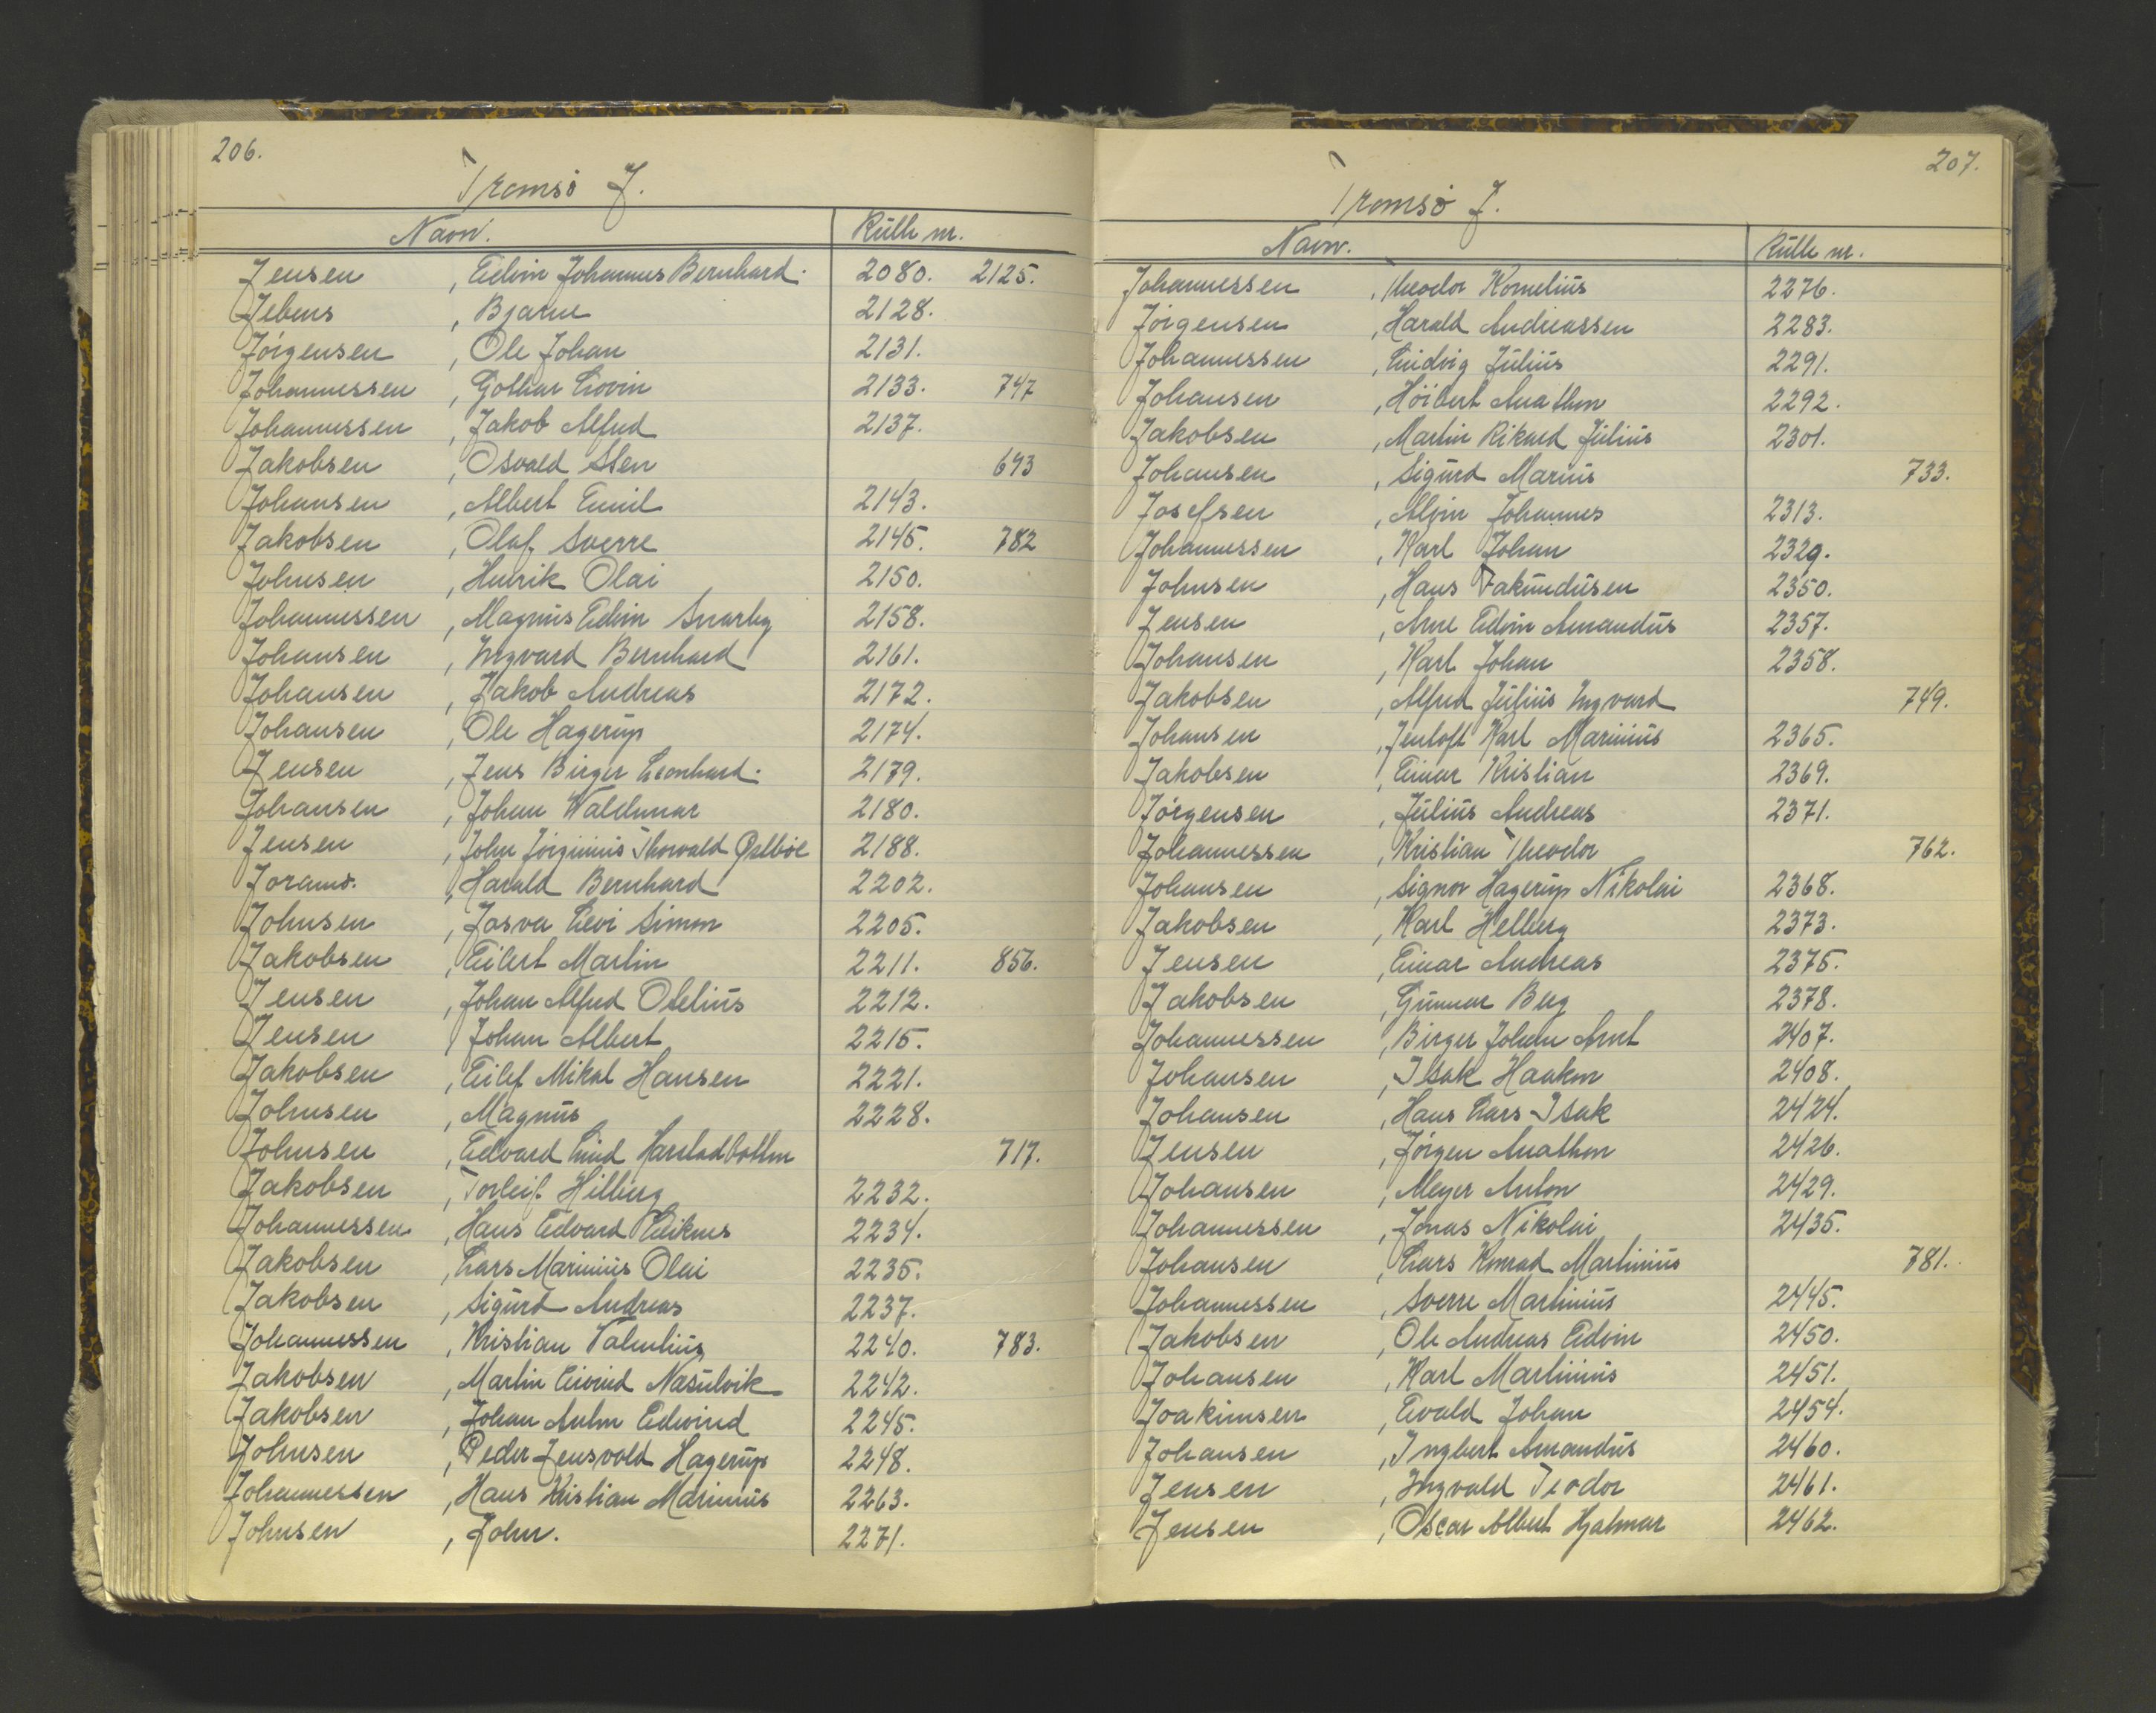 206.
Tromsö J.
Navn. Rulle nr.
Jensen, Edvin Johannes Bernhard. 2080. 2125.
Jebens, Bjarne 2128.
Jörgensen, Ole Johan 2131.
Johannessen, Gothar Lovin 2133. 747
Johannessen, Jakob Alfred 2137.
Jakobsen, Osvald Sten 643
Johansen, Albert Emil 2143.
Jakobsen, Olaf Sverre 2145. 782
Johnsen, Henrik Olai 2150.
Johannessen, Magnus Edvin Snarby 2158.
Johansen, Ingvard Bernhard 2161.
Johansen, Jakob Andreas 2172.
Johansen, Ole Hagerup 2174.
Jensen, Jens Birger Leonhard. 2179.
Johansen, Johan Waldemar 2180.
Jensen, John Jörginius Thorvald 2188.
Joramo., Harald Bernhard 2202.
Johnsen, Josva Levi Simon 2205.
Jakobsen, Eilert Martin 2211. 856.
Jensen, Johan Alfred Otelius 2212.
Jensen, Johan Albert 2215.
Jakobsen, Eilef Mikal Hansen 2221.
Johnsen, Magnus 2228.
Johnsen, Edvard Lind 717.
Jakobsen, Torleif Hilberg 2232.
Johannessen, Hans Edvard 2234.
Jakobsen, Lars Marinius Olai 2235.
Jakobsen, Sigurd Andreas 2237.
Johannessen, Kristian 2240. 783.
Jakobsen, Martin Eivind 2242.
Jakobsen, Johan Anton Edvind 2245.
Johnsen, Peder Jensvold Hagerup 2248.
Johannessen, Hans Kristian Marinius 2263.
Johnsen, John. 2271.
207.
Tromsö J.
Navn. Rulle nr.
Johannessen, Theodor Kornelius 2276.
Jörgensen, Harald Andreassen 2283.
Johannessen, Ludvig Julius 2291.
Johansen, Höibert Anathon 2292.
Jakobsen, Martin Rikard Julius 2301.
Johansen, Sigurd Marius 733.
Josefsen, Alvin Johannes 2313.
Johannessen, Karl Johan 2329.
Johnsen, Hans Fakundusen 2350.
Jensen, Arne Edvin Amandus 2357.
Johansen, Karl Johan 2358.
Jakobsen, Alfred Julius Ingvard 749.
Johansen, Jentoft Karl Marinius 2365.
Jakobsen, Einar Kristian 2369.
Jörgensen, Julius Andreas 2371.
Johannessen, Kristian Theodor 762.
Johansen, Signor Hagerup Nikolai 2368.
Jakobsen, Karl Helberg 2373.
Jensen, Einar Andreas 2375.
Jakobsen, Gunnar Berg 2378.
Johannessen, Birger Johan Arnt 2407.
Johansen, Isak Haakon 2408.
Johansen, Hans Lars Isak 2424.
Jensen, Jörgen Anathon 2426.
Johansen, Meyer Anton 2429.
Johannessen, Jonas Nikolai 2435.
Johansen, Lars Konrad Martinius 781.
Johannessen, Sverre Martinius 2445.
Jakobsen, Ole Andreas Edvin 2450.
Johansen, Karl Martinius 2451.
Joakimsen, Evald Johan 2454.
Johansen, Ingbert Amandus 2460.
Jensen, Ingvald Teodor 2461.
Jensen, Oscar Albert Hjalmar 2462.